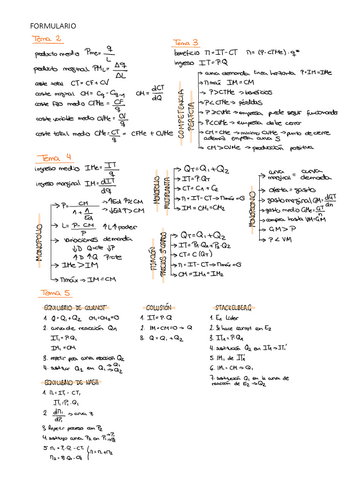 FORMULARIO
Tema 2
producto medio PMe = q/L
producto marginal PML = Δq/ΔL
coste total CT = CF + CV
coste marginal CM = Cq - Cq-1 dCT/dQ
coste fijo medio CFMe = CF/q
coste variable medio CVMe = CV/q
coste total medio CMe = CT/q = CFMe + CVMe
Tema 3
beneficio π = IT - CT π = (P - CTMe) · q*
ingreso IT = P·Q
COMPETENCIA PERFECTA
curva demanda línea horizontal P = IM = IMe
π máx IM = CM
P > CTMe → beneficios
P < CTMe → pérdidas
P > CVMe → empresa puede seguir funcionando
P < CVMe → empresa debe cerrar
CM = CMe → mínimo CVMe → punto de cierre
CM > CVMe → producción positiva
Tema 4
ingreso medio IMe = IT/q
ingreso marginal IM = dIT/dq
MONOPOLIO
L = P - CM/P ↑L ↑poder
variaciones demanda
IMe > IM
π máx → IM = CM
MONOPOLIO MULTIPLANTA
QT = Q1 + Q2
IT = P·QT
CT = C1 + C2
π = IT - CT → π máx = 0
IM = CM1 = CM2
FIJACIÓN PRECIOS 3º GRADO
QT = Q1 + Q2
IT = P1·Q1 + P2·Q2
CT = C (QT)
π = IT - CT → π máx = 0
CM = IM1 = IM2
MONOPSONIO
curva marginal = curva demanda
oferta = gasto
gasto marginal GM = dGT/dn
gasto medio GMe = GT/n
compra hasta VM = GM
GM > P
P < VM
Tema 5
EQUILIBRIO DE COURNOT
1. Q = Q1 + Q2 CM1 = CM2 = 0
2. curva de reacción Q1
IT1 = P·Q1
IM1 = CM
3. repetir para curva reacción Q2
4. sustituir Q2 en Q1
EQUILIBRIO DE NASH
1. π = IT - CT
IT1 = P1·Q1
3. hacer mismo con P2
COLUSIÓN
1. IT = P·Q
2. IM = CM = 0 → Q
3. Q = Q1 + Q2
STACKELBERG
1. E1 líder
3. IT1 = P·Q1
4. sustitución Q2 en IT1 → IT1'
5. IM1 de IT1'
6. IM1 = CM → Q1
7. sustitución Q1 en la curva de
reacción de E2 → Q2